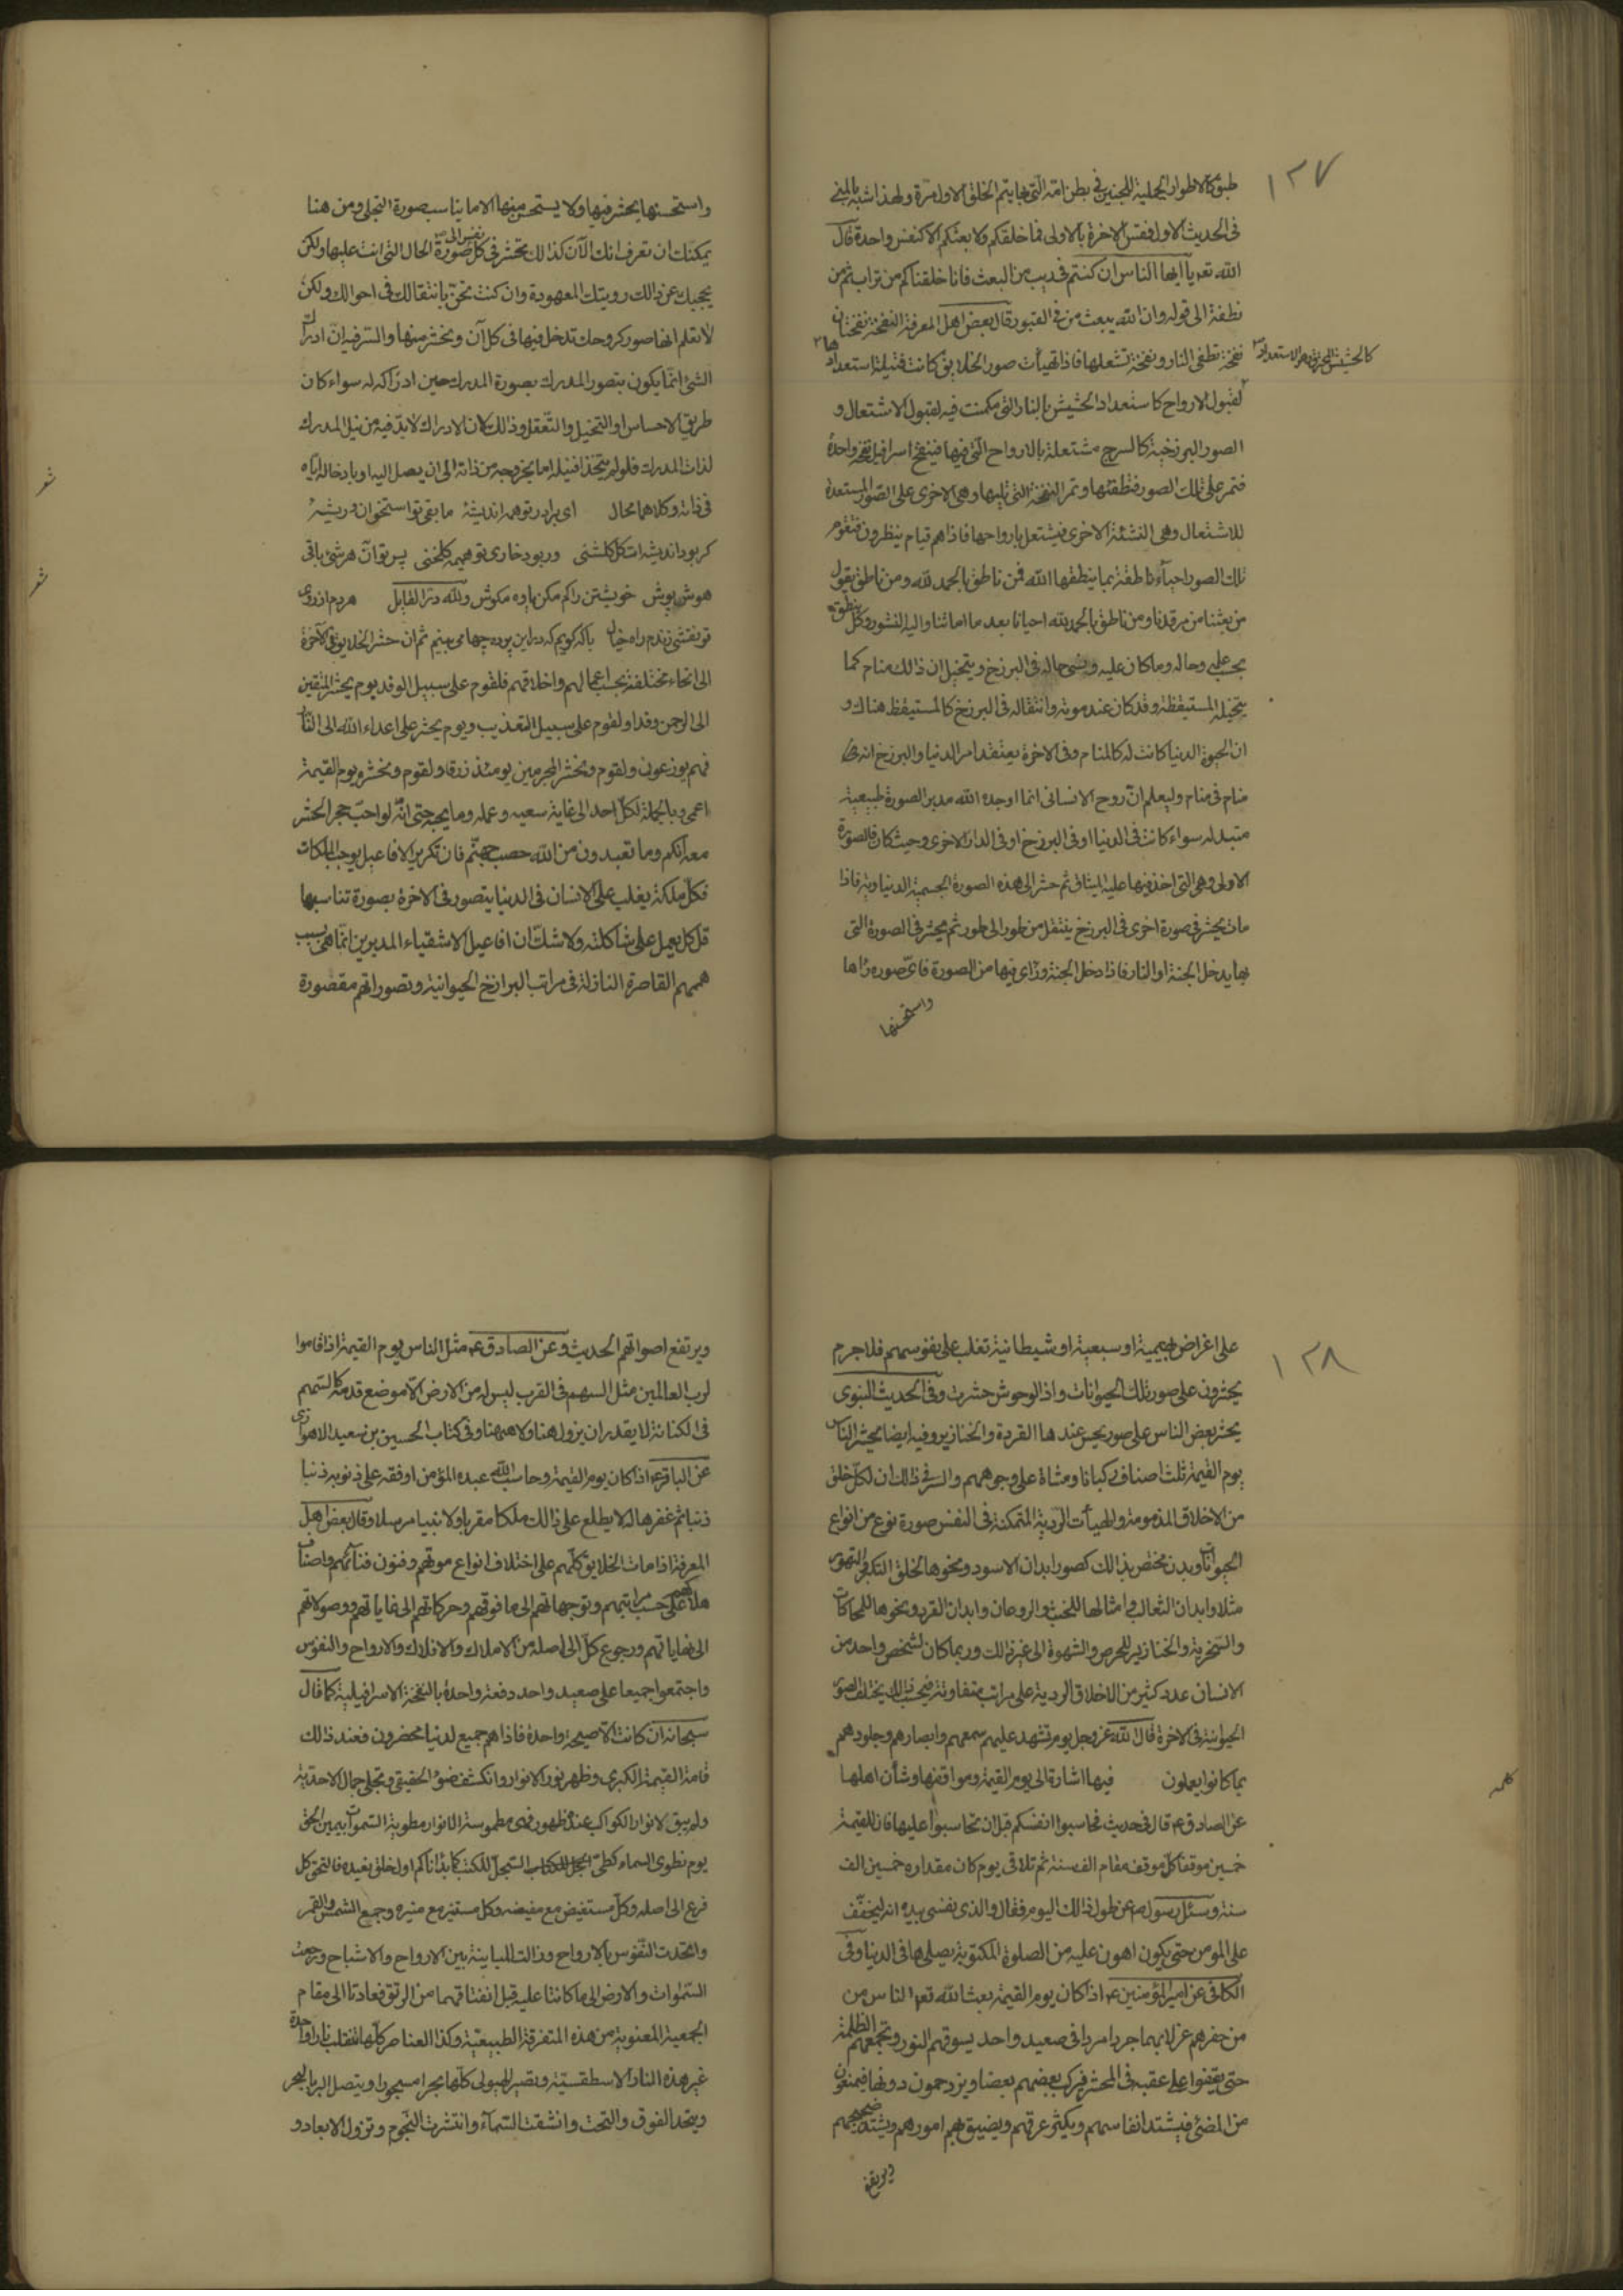 ١٢٧
طبق الاطوار الجبلية للجنين فى بطن امه التى بها يتم الخلق الاول مرة ولهذا شبه بالمنى
فى الحديث الاول فقس الاخرة بالاولى فما خلقكم ولا بعثكم الا كنفس واحدة قال
الله تعه يا ايها الناس ان كنتم فى ريب من البعث فانا خلقناكم من تراب ثم من
نطفة الى قوله وان الله يبعث من فى القبور قال بعض اهل المعرفة النفخة نفختان
نفخة تطفى النار ونفخة تشعلها فاذا تهيات صور الخلايق كانت فتيلة استعدادها
لقبول الارواح كاستعداد الحشيش بالنار التى مكنت فيه لقبول الاشتعال و
الصور البرزخية كالسرج مشتعلة بالارواح التى فيها فينفخ اسرافيل نفخة واحدة
فتمر على تلك الصور فتطفئها وتمر النفخة التى تليها وهى الاخرى على الصور المستعدة
للاشتعال وهى النشئة الاخرى فيشتعل بارواحها فاذا هم قيام ينظرون فتقوم
تلك الصور احياء ناطقة بما ينطقها الله فمن ناطق بالحمد لله ومن ناطق يقول
من بعثنا من مرقدنا ومن ناطق بالحمد لله احيانا بعد ما اماتنا واليه النشور وكل ينطق
بحسب علمه وحاله وما كان عليه ونسى حاله فى البرزخ ويتخيل ان ذالك منام كما
يتخيله المستيقظ وقد كان عند موته وانتقاله فى البرزخ كالمستيقظ هناك و
ان الحيوة الدنيا كانت له كالمنام وفى الاخرة يعتقد امر الدنيا والبرزخ انه
منام فى منام وليعلم ان روح الانسانى انما اوجده الله مدبر الصورة طبيعية
متبدله سواء كانت فى الدنيا او فى البرزخ او فى الدار الاخرى وحيث كان فالصورة
الاولى وهى التى اخذ فيها عليه الميثاق ثم حشر الى هذه الصورة الجسمية الدنياوية فاذا
مات يحشر فى صورة اخرى فى البرزخ ينتقل من طور الى طور ثم يحشر فى الصورة التى
بها يدخل الجنة او النار فاذا دخل الجنة وراى فيها من الصورة فاى صوره راها
واستحسنها
واستحسنها يحشر فيها ولا يستحسن منها الا ما يناسب صورة التجلى ومن هنا
يمكنك ان تعرف انك الآن كذالك تحشر فى كل نفس الى صورة الحال التى انت عليها ولكن
يحجبك عن ذالك رويتك المعهودة وان كنت تحس بانتقالك فى احوالك ولكن
لا تعلم انها صور كروحك تدخل فيها فى كل آن وتحشر منها والسر فيه ان ادراك
الشئ انما يكون بتصور المدرك بصورة المدرك حين ادراكه له سواء كان
طريق الاحساس او التخيل والتعقل وذالك لان الادراك لابد فيه من نيل المدرك
لذات المدرك فلو لم يتحدا فنيله اما بخروجه من ذاته الى ان يصل اليه او بادخاله اياه
فى ذاته وكلاهما محال اى برادر تو همه انديشهٔ ما بقى تو استخوان وريشهٔ
شعر
كر بود انديشه ات كل كلشنى وربود خارى تو هيمه كلخنى پس تو آن هر شئ باقى
هوش پوش خويشتن راكم مكن ياوه مكوش ولله در القايل هر دم از روى
شعر
تو نقشى زندم راه خيال با كه كويم كه در اين پرده چها مى بينم ثم ان حشر الخلايق فى الآخرة
الى انحاء مختلفة بحسب اعمالهم واخلاقهم فلقوم على سبيل الوفد يوم يحشر المتقين
الى الرحمن وفدا ولقوم على سبيل التعذيب ويوم يحشر على اعداء الله الى النار
فهم يوزعون ولقوم ونحشر المجرمين يومئذ زرقا ولقوم ونحشره يوم القيمة
اعمى وبالجملة لكل احد الى غاية سعيه وعمله وما يحبه حتى انه لو احب حجر الحشر
معه انكم وما تعبدون من الله حصب جهنم فان تكرير الافاعيل يوجب الملكات
فكل ملكة يغلب على الانسان فى الدنيا يتصور فى الاخرة بصورة تناسبها
قل كل يعمل على شاكلته ولا شك ان افاعيل الاشقياء المدبرين انما هى بسبب
هممهم القاصرة النازلة فى مراتب البرازخ الحيوانية وتصوراتهم مقصورة
١٢٨
على اغراض بهيمية او سبعية او شيطانية تغلب على نفوسهم فلا جرم
يحشرون على صور تلك الحيوانات واذ الوحوش حشرت وفى الحديث النبوى
يحشر بعض الناس على صور يحسن عندها القردة والخنازير وفيه ايضا يحشر الناس
يوم القيمة ثلث اصناف ركبانا ومشاة على وجوههم والسر فى ذالك ان لكل خلق
من الاخلاق المذمومة والهيأت الردية المتمكنة فى النفس صورة نوع من انواع
الحيوانات وبدن مختص بذالك كصور ابدان الاسود ونحوها لخلق التكبر والتهور
مثلا وابدان الثعالب وامثالها للخبث والروغان وابدان القرد ونحوها للمحاكات
والسخرية والخنازير للحرص والشهوة الى غير ذالك وربما كان لشخص واحد من
الانسان عدد كثير من الاخلاق الردية على مراتب متفاوتة فبحسب ذالك يختلف الصور
الحيوانية فى الاخرة قال الله عز وجل يوم تشهد عليهم سمعهم وابصارهم وجلودهم
بما كانوا يعملون فيها اشارة الى يوم القيمة ومواقفها وشأن اهلها
كلمه
عن الصادق ع قال فى حديث فحاسبوا انفسكم قبل ان تحاسبوا عليها فان للقيمة
خمسين موقفا كل موقف مقام الف سنة ثم تلا فى يوم كان مقداره خمسين الف
سنة وسئل رسول ص عن طول ذالك اليوم فقال والذى نفسى بيده انه ليخفف
على المومن حتى يكون اهون عليه من الصلوة المكتوبة يصليها فى الدنيا وفى
الكافى عن امير المؤمنين ع اذا كان يوم القيمة بعث الله تعه الناس من
من حفرهم عزلا بهما جردا مردا فى صعيد واحد يسوقهم النور وتجمعهم الظلمة
حتى يقفوا على عقبه فى المحشر فيركب بعضهم بعضا ويزدحمون دونها فيمنعون
من المضى فيشتد انفاسهم ويكثر عرقهم ويضيق بهم امورهم ويشتد ضجيجهم
ويرتفع
ويرتفع اصواتهم الحديث وعن الصادق ع مثل الناس يوم القيمة اذا قاموا
لرب العالمين مثل السهم فى القرب ليس له من الارض الا موضع قدمه كالسهم
فى الكنانة لا يقدر ان يزول هنا ولا ههنا وفى كتاب الحسين بن سعيد الاهوازى
عن الباقر ع اذا كان يوم القيمة وحاسب الله عبده المؤمن اوقفه على ذنوبه ذنبا
ذنبا ثم غفرها له لا يطلع على ذالك ملكا مقربا ولا نبيا مرسلا وقال بعض اهل
المعرفة اذا مات الخلايق كلهم على اختلاف انواع موتهم وفنون فنائهم واصناف
هلاكهم على حسب مراتبهم وتوجهاتهم الى ما فوقهم وحركاتهم الى غاياتهم ووصولاتهم
الى نهاياتهم ورجوع كل الى اصله من الاملاك والافلاك والارواح والنفوس
واجتمعوا جميعا على صعيد واحد دفعة واحدة بالنفخة الاسرافيلية كما قال
سبحانه ان كانت الا صيحة واحدة فاذا هم جميع لدينا محضرون فعند ذالك
قامت القيمة الكبرى وظهر نور الانوار وانكشف ضوء الحقيقى وتجلى جمال الاحدية
ولم يبق لانوار الكواكب عند ظهور فهى مطموسة الانوار مطوية السموات بيمين الحق
يوم نطوى السماء كطى السجل للكتب كما بدأناكم اول خلق نعيده فالتحق كل
فرع الى اصله وكل مستفيض مع مفيضه وكل مستنير مع منيره وجمع الشمس والقمر
واتحدت النفوس بالارواح وزالت المباينة بين الارواح والاشباح ورجعت
السموات والارض الى ما كانتا عليه قبل انفتاقهما من الرتق فعادتا الى مقام
الجمعية المعنوية من هذه المتفرقة الطبيعية وكذا العناصر كلها تنقلب نارا واحدة
غير هذه النار الاسطقسية وتصير الهيولى كلها بحرا مسجورا ويتصل البر بالبحر
ويتحد الفوق والتحت وانشقت السماء وانتشرت النجوم وتزول الابعاد و